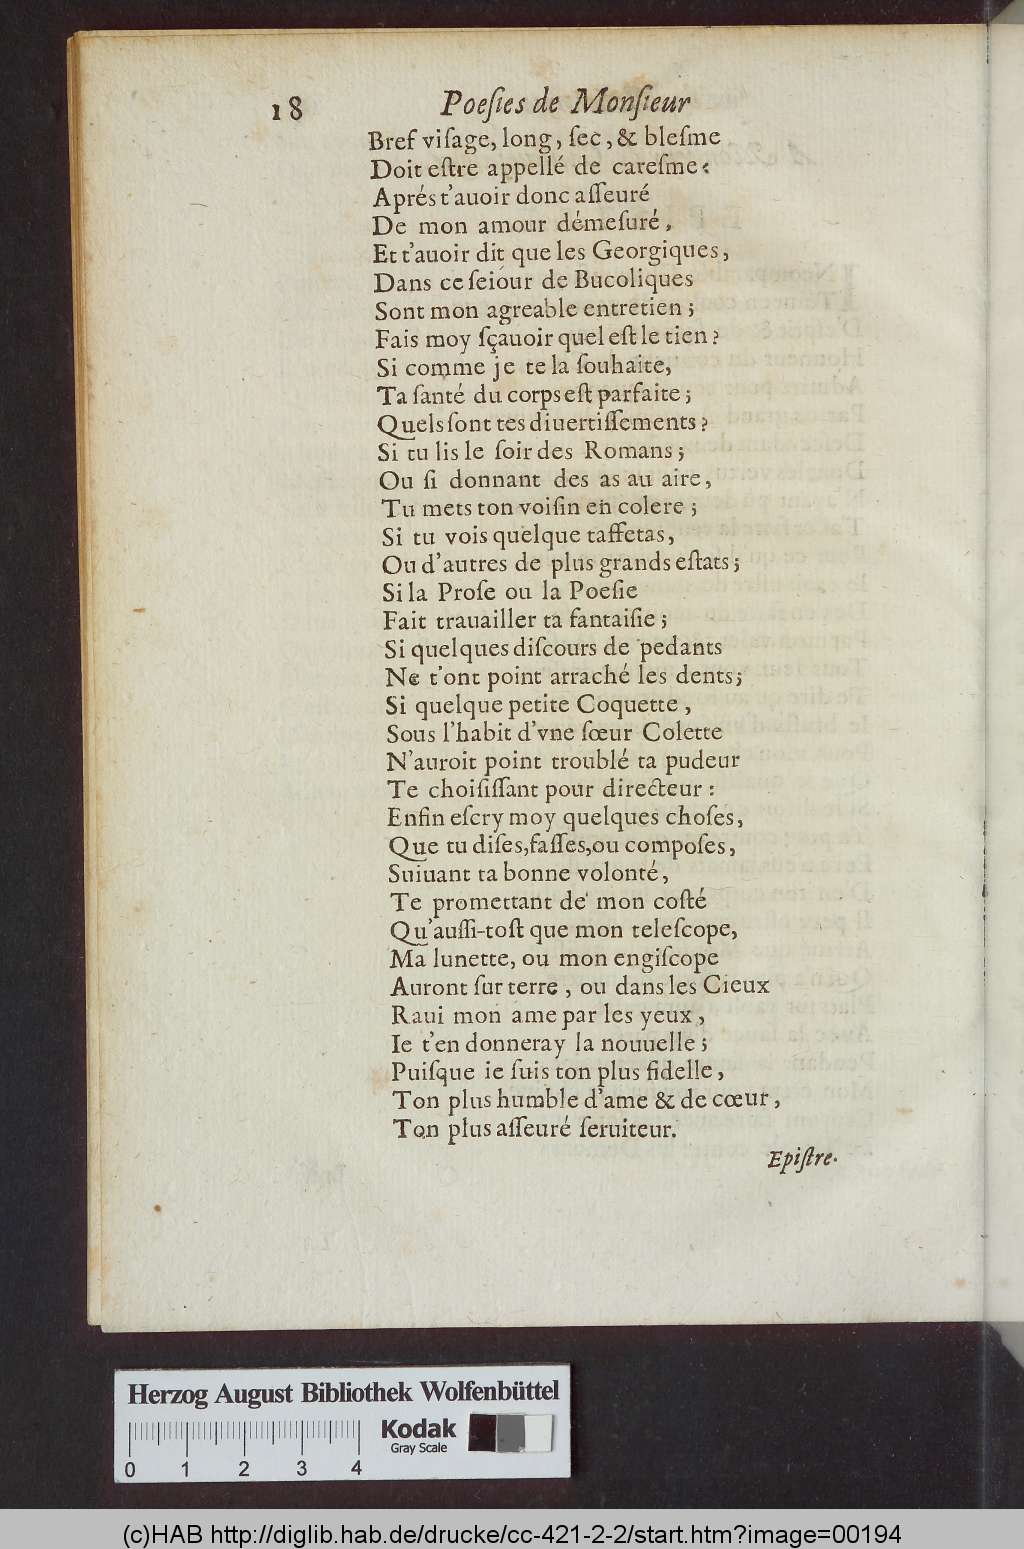 18 Poeſies de Monſieur
Bref viſage, long, ſec, & bleſme
Doit eſtre appellé de careſme:
Aprés t'auoir donc aſſeuré
De mon amour démeſuré,
Et t'auoir dit que les Georgiques,
Dans ce ſeiour de Bucoliques
Sont mon agreable entretien;
Fais moy ſçauoir quel eſt le tien?
Si comme je te la ſouhaite,
Ta ſanté du corps eſt parfaite;
Quels ſont tes diuertiſſements?
Si tu lis le ſoir des Romans;
Ou ſi donnant des as au aire,
Tu mets ton voiſin en colere;
Si tu vois quelque taffetas,
Ou d'autres de plus grands eſtats;
Si la Proſe ou la Poeſie
Fait trauailler ta fantaiſie;
Si quelques diſcours de pedants
Ne t'ont point arraché les dents;
Si quelque petite Coquette,
Sous l'habit d'vne ſœur Colette
N'auroit point troublé ta pudeur
Te choiſiſſant pour directeur:
Enfin eſcry moy quelques choſes,
Que tu diſes, faſſes, ou compoſes,
Suiuant ta bonne volonté,
Te promettant de mon coſté
Qu'auſſi-toſt que mon teleſcope,
Ma lunette, ou mon engiſcope
Auront ſur terre, ou dans les Cieux
Raui mon ame par les yeux,
Ie t'en donneray la nouuelle;
Puiſque ie ſuis ton plus fidelle,
Ton plus humble d'ame & de cœur,
Ton plus aſſeuré ſeruiteur.
Epiſtre.
Herzog August Bibliothek Wolfenbüttel
Kodak
Gray Scale
0 1 2 3 4
(c)HAB http://diglib.hab.de/drucke/cc-421-2-2/start.htm?image=00194